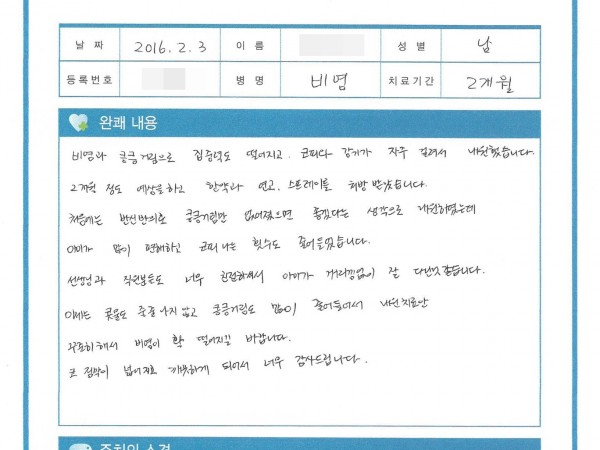 날 짜 2016. 2. 3 이 름 성 별 남
등록번호 병 명 비염 치료기간 2개월
완쾌 내용
비염과 킁킁거림으로 집중력도 떨어지고. 코피와 감기가 자주 걸려서 내원했습니다.
2개월 정도 예상을 하고 한약과 연고, 스프레이를 처방 받았습니다.
처음에는 반신반의로 킁킁거림만 없어졌으면 좋겠다는 생각으로 내원하였는데
아이가 많이 편해하고 코피 나는 횟수도 줄어들었습니다.
선생님과 직원분들도 너무 친절하셔서 아이가 거리낌없이 잘 다닌것 같습니다.
이제는 콧물도 줄줄 나지 않고 킁킁거림도 많이 줄어들어서 내원치료만
꾸준히 해서 비염이 확 떨어지길 바랍니다.
코 점막이 넓어지고 깨끗하게 되어서 너무 감사드립니다.